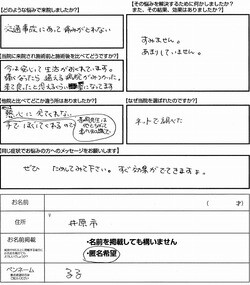 【どのような悩みで来院しましたか？】
交通事故にあって痛みがとれない
【その悩みを解決するために何かしましたか？
また、その結果、効果はありましたか？】
すみません。
あまりしていません。
【当院に来院される施術前と施術後を比べてどうですか？】
今は安心して生活がおくれています。
痛くなったら通える病院がみつかった。
来て良かったと思えるくらい楽になってます
【当院と比べてどこか違う所はありましたか】
手でほぐしてくれるので
【なぜ当院を選ばれたのですか？】
ネットで調べた
【同じ症状でお悩みの方へのメッセージをお願いします】
ぜひ ためしてみて下さい。すぐ効果がでてきますよ。
お名前
（ 才）
ご住所
〒
井原市
お名前掲載
・名前を掲載しても構いません
・匿名希望
ペンネーム
るる